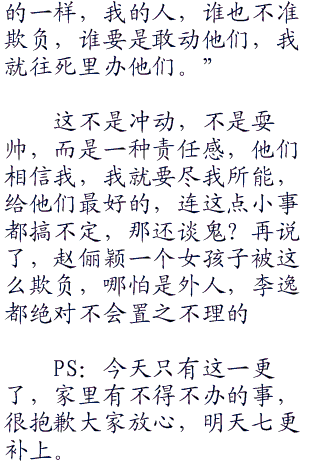 的一样，我的人，谁也不准
欺负，谁要是敢动他们，我
就往死里办他们。”
这不是冲动，不是耍
帅，而是一种责任感，他们
相信我，我就要尽我所能，
给他们最好的，连这点小事
都搞不定，那还谈鬼？再说
了，赵俪颖一个女孩子被这
么欺负，哪怕是外人，李逸
都绝对不会置之不理的
PS：今天只有这一更
了，家里有不得不办的事，
很抱歉大家放心，明天七更
补上。